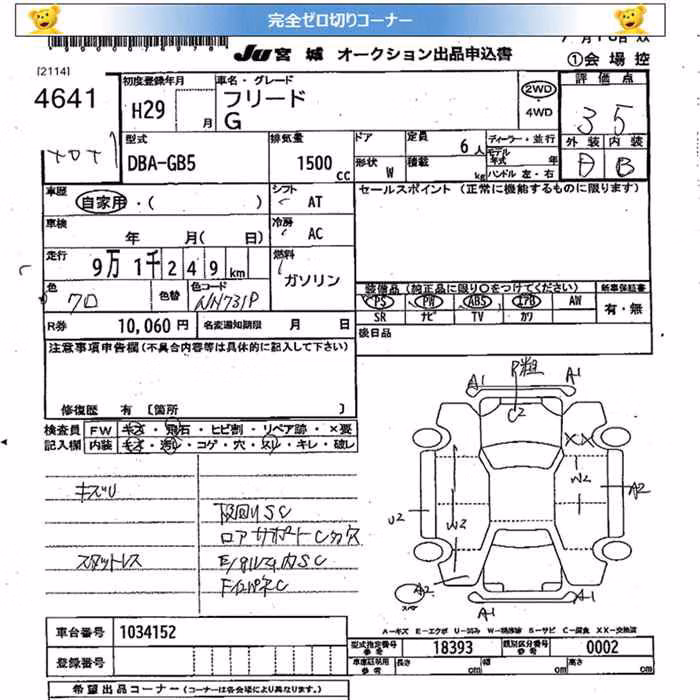 完全ゼロ切りコーナー
JU 宮城 オークション出品申込書
①会場控
[2114]
4641
初度登録年月
H29
月
車名・グレード
フリード
G
2WD
4WD
評価点
3 5
外装 内装
B
型式
DBA-GB5
排気量
1500 cc
ドア
形状
W
定員
6人
積載
kg
ディーラー・並行
モデル年式 年
ハンドル 左・右
車歴
自家用・( )
シフト
AT
セールスポイント (正常に機能するものに限ります)
車検
年 月( 日)
冷房
AC
走行
9万 1千 2 4 9 km
燃料
ガソリン
色
クロ
色替
色コード
NH731P
装備品 (純正品に限り○をつけてください)
新車保証書
PS PW ABS エアB AW
SR ナビ TV カワ
有・無
R券
10,060 円
名変通知期限 月 日
後日品
注意事項申告欄 (不具合内容等は具体的に記入して下さい)
修復歴 有 [箇所 ]
検査員 FW キズ・飛石・ヒビ割・リペア跡・×要
記入欄 内装 キズ・汚れ・コゲ・穴・スレ・キレ・破レ
キズU
下回りSC
ロアサポートCカケ
スタットレス
F インパネC
P粗
A1
A1
C2
XX
W2
A2
U2
W2
A2
A1
A1
A-キズ E-エクボ U-凹み W-補修跡 S-サビ C-腐食 XX-交換済
車台番号
1034152
型式指定番号 参考
18393
類別区分番号 参考
0002
登録番号
車庫証明用 参考
長さ cm
幅 cm
高さ cm
希望出品コーナー (コーナーは各会場により異なります。)